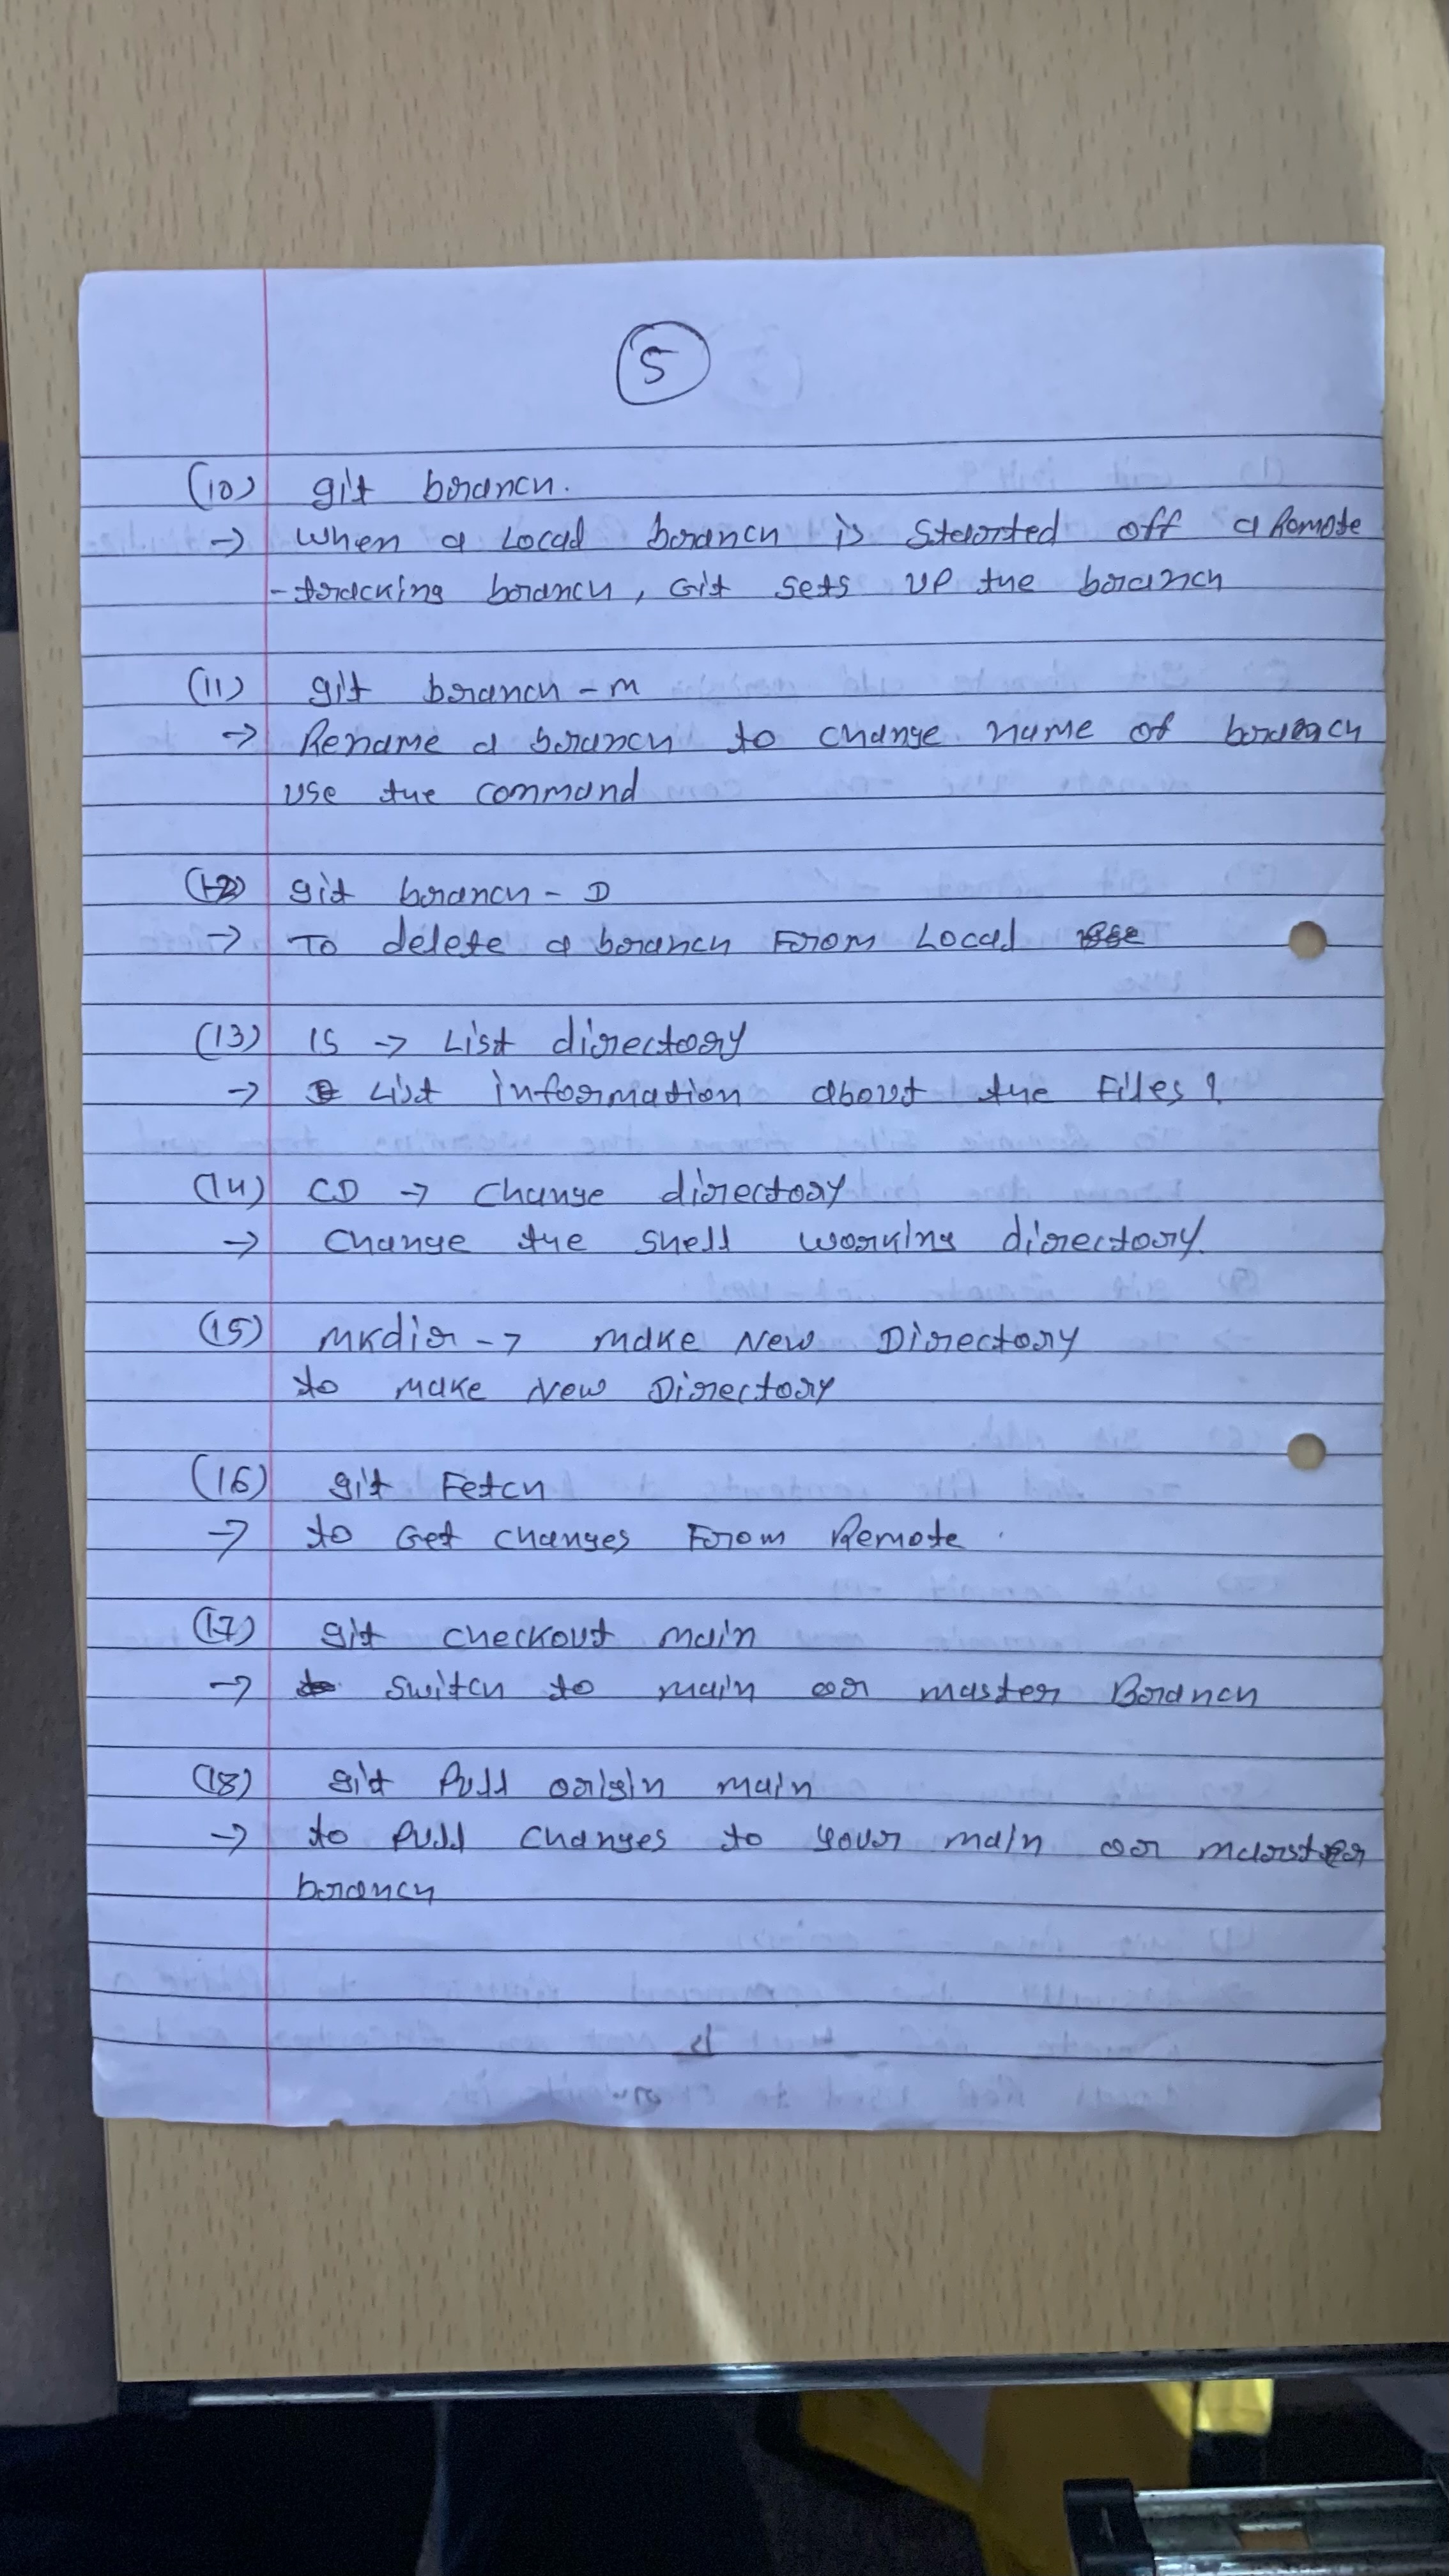 5
(10) git branch.
→ When a Local branch is Started off a Remote
-tracking branch, Git sets up the branch
(11) git branch -m
→ Rename a branch to change name of branch
use the command
(12) git branch - D
→ To delete a branch From Local
(13) ls → List directory
→ List information about the Files
(14) CD → Change directory
→ Change the shell working directory.
(15) Mkdir → make New Directory
to make New Directory
(16) git Fetch
→ to Get changes From Remote.
(17) git checkout main
→ switch to main or master Branch
(18) git Pull origin main
→ to Pull changes to your main or master
branch